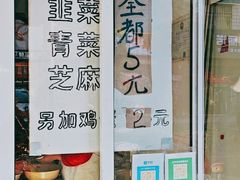 韭菜
青菜
芝麻
另加鸡
2元
全都5元